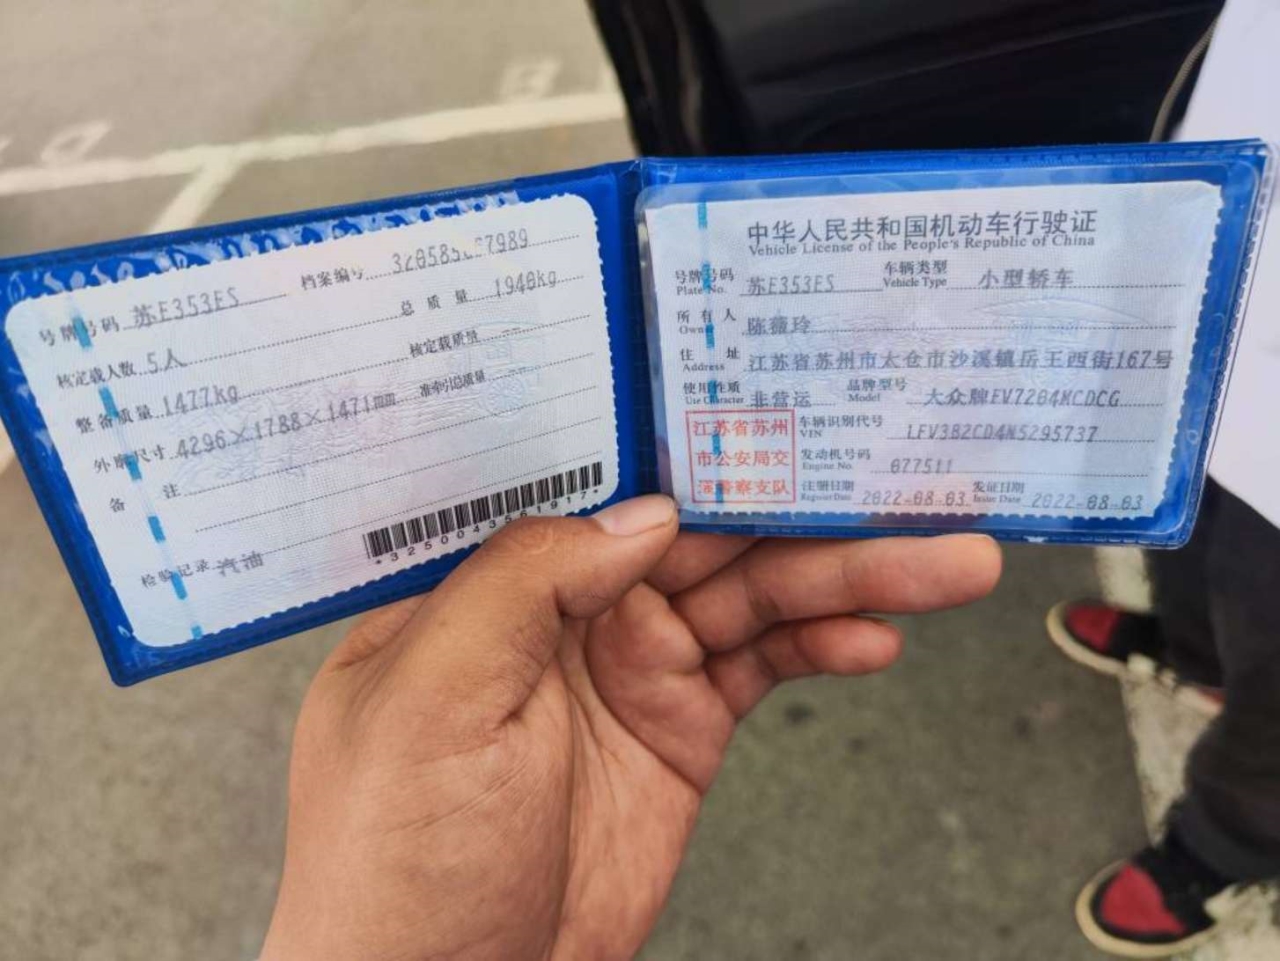 号牌号码 苏E353ES 档案编号
核定载人数 5人 总质量 1940kg
整备质量 1477kg 核定载质量 --
外廓尺寸 4296×1788×1471mm 准牵引总质量 --
备注
检验记录 汽油
*3250043561917*
中华人民共和国机动车行驶证
Vehicle License of the People's Republic of China
号牌号码 苏E353ES 车辆类型 小型轿车
Plate No. Vehicle Type
所有人 陈薇玲
Owner
住址 江苏省苏州市太仓市沙溪镇岳王西街167号
Address
使用性质 非营运 品牌型号 大众牌FV7204KCDCG
Use Character Model
江苏省苏州
市公安局交
通警察支队
车辆识别代号 LFV3B2CD4N5295737
VIN
发动机号码 077511
Engine No.
注册日期 2022-08-03 发证日期 2022-08-03
Register Date Issue Date